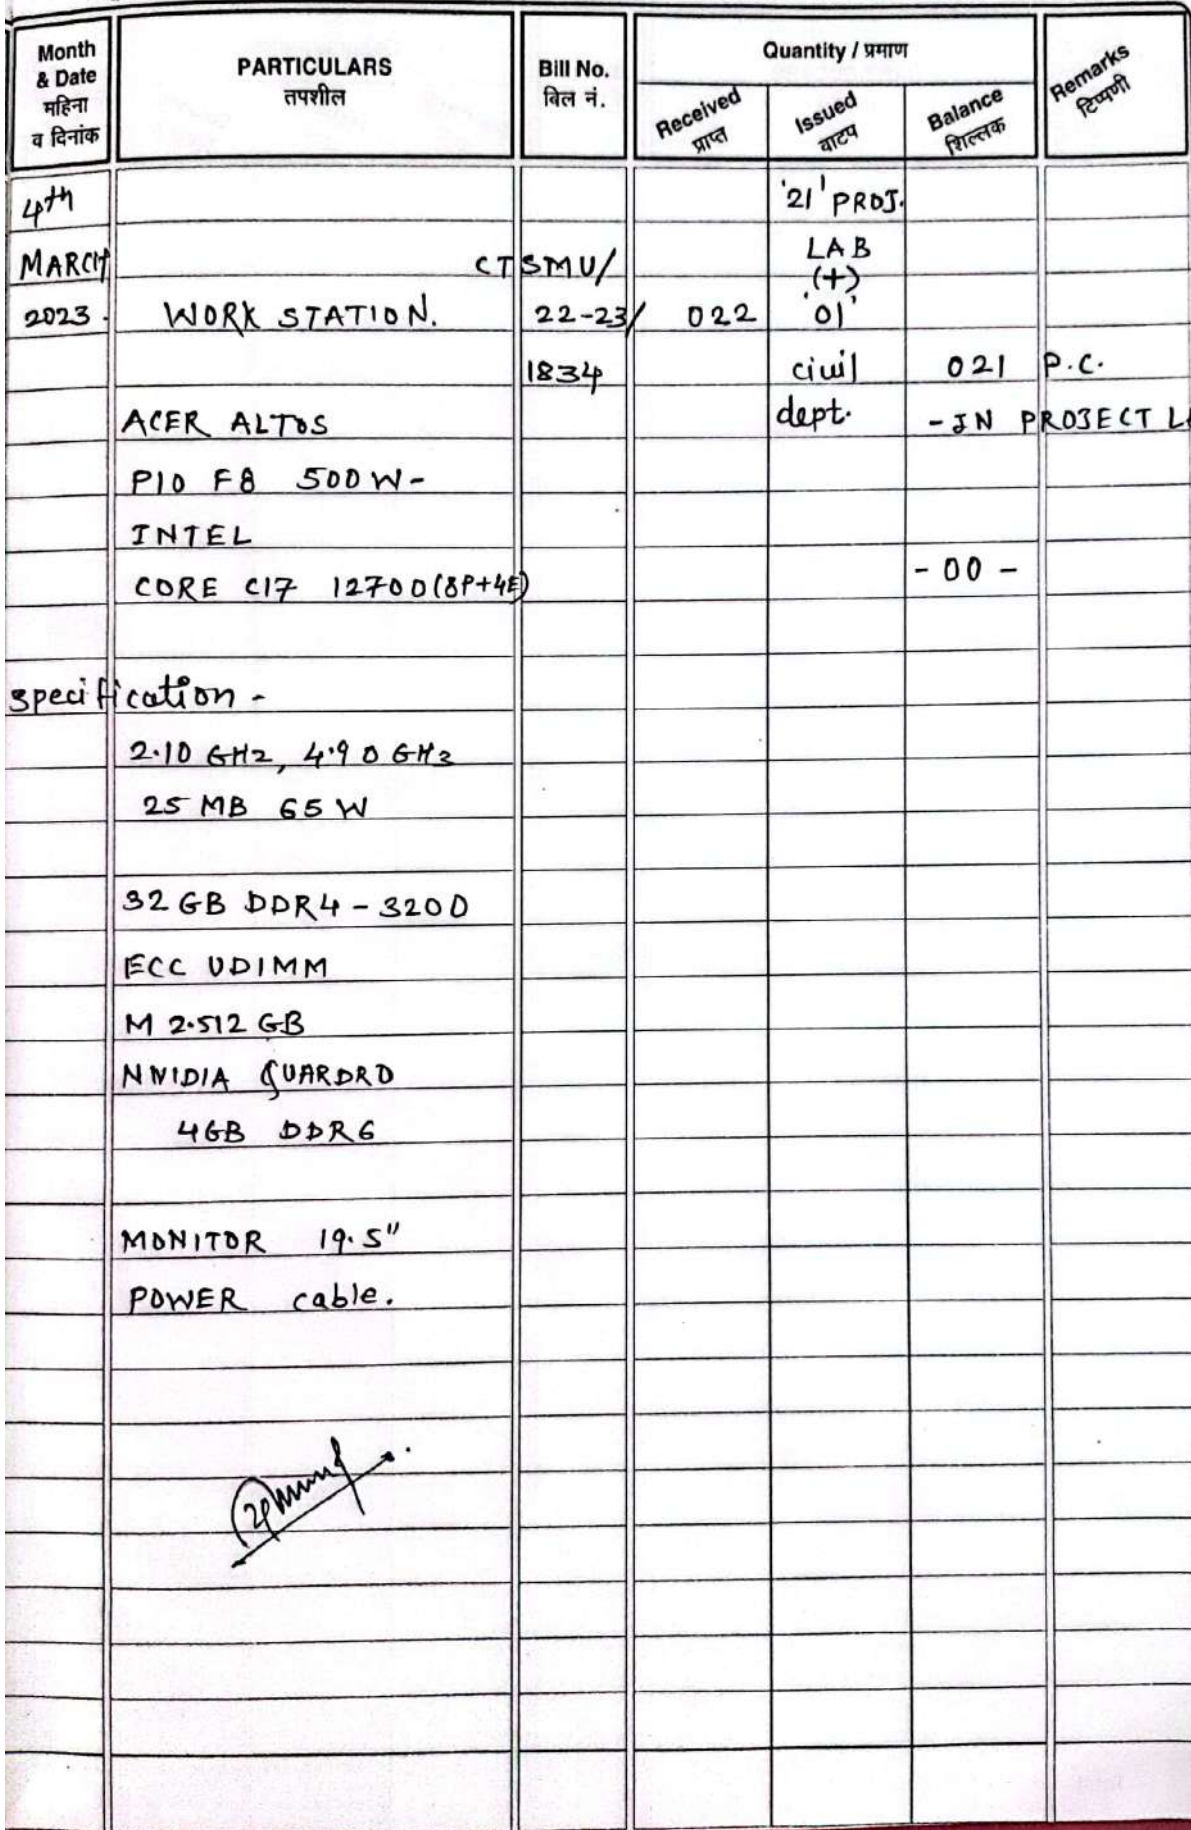 Month & Date महिना व दिनांक
PARTICULARS तपशील
Bill No. बिल नं.
Quantity / प्रमाण
Received प्राप्त
Issued वाटप
Balance शिल्लक
Remarks टिप्पणी
4th '21' PROJ.
MARCH CTSMU/ LAB
(+)
2023. WORK STATION. 22-23/ 022 '01'
1834 civil 021 P.C.
ACER ALTOS dept. - IN PROJECT L
P10 F8 500W-
INTEL
CORE CI7 12700(8P+4E) - 00 -
specification -
2.10 GHz, 4.90 GHz
25 MB 65 W
32 GB DDR4 - 3200
ECC UDIMM
M 2.512 GB
NVIDIA QUARDRO
4GB DDR6
MONITOR 19.5"
POWER cable.